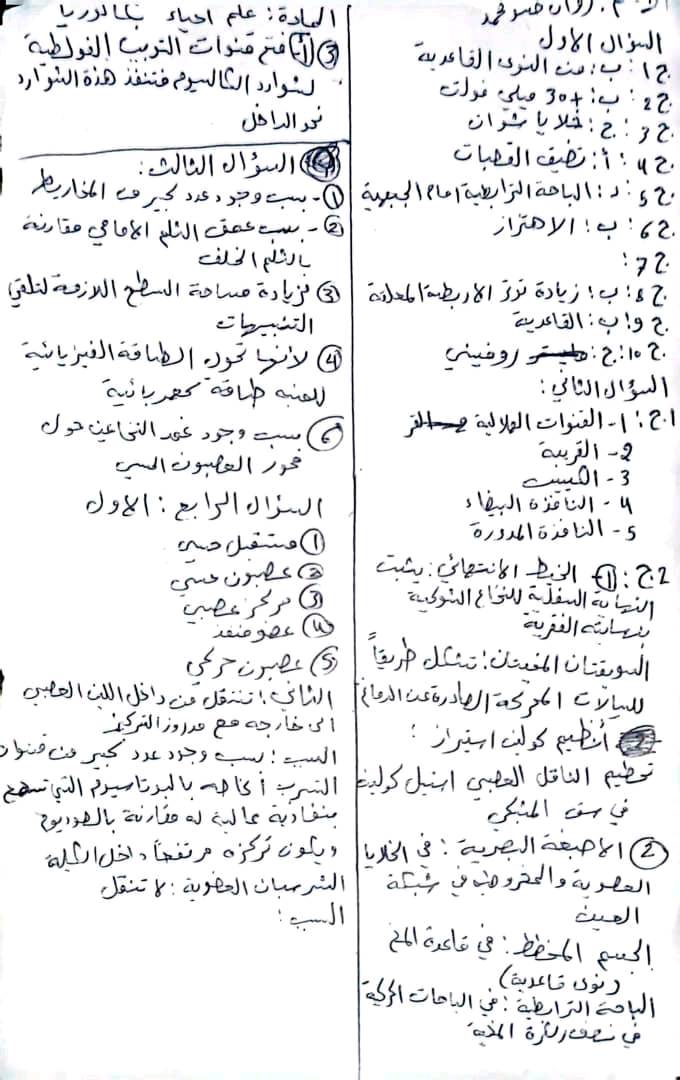 المادة: علم احياء بكالوريا
السؤال الاول
ج1: ب: من النوى القاعدية
ج2: ب: +30 ميلي فولت
ج3: ج: خلايا شوان
ج4: أ: تضيق القصبات
ج5: د: الباحة الترابطية امام الجبهية
ج6: ب: الاهتزاز
ج7:
ج8: ب: زيادة توتر الاربطة المعلقة
ج9: ب: القاعدية
ج10: ج: روفيني
السؤال الثاني:
ج1: 1- القنوات الهلالية
2- القريبة
3- الكييس
4- النافذة البيضاء
5- النافذة المدورة
ج2: 1- الخيط الانتهائي: يثبت
النهاية السفلية للنخاع الشوكي
بنهايته الفقرية
السويقتان المخيتان: تشكل طريقاً
للسيالات المحركة الصادرة عن الدماغ
أنظيم كولين استيراز:
تحطيم الناقل العصبي استيل كولين
في
2 الاصبغة البصرية: في الخلايا
العصوية والمخروطية في شبكة
العين
الجسم المخطط: في قاعدة المخ
(نوى قاعدية)
الباحة الترابطية: في الباحات الحركية
في نصف الكرة المخية
3 1- فتح قنوات التبويب الفولطية
لشوارد الكالسيوم فتنفذ هذة الشوارد
نحو الداخل
السؤال الثالث:
1- بسبب وجود عدد كبير من المخاريط
2- بسبب عمق الثلم الامامي مقارنة
بالثلم الخلف
3 لزيادة مساحة السطح اللازمة لتلقي
التنبيهات
4 لأنها تحول الطاقة الفيزيائية
للمنبه طاقة كهربائية
6 بسبب وجود غمد النخاعين حول
محور العصبون الحسي
السؤال الرابع: الاول
1 مستقبل حسي
2 عصبون حسي
3 مركز عصبي
4 عضو منفذ
5 عصبون حركي
الثاني: تنتقل من داخل الليف العصبي
الى خارجه مع مدروز التركيز
السبب: بسبب وجود عدد كبير من قنوات
التسرب الخاصة بالبوتاسيوم التي تسمح
بنفاذية عالية له مقارنة بالصوديوم
ويكون تركزه مرتفعاً داخل الخلية
الشرسبات العضوية: لا تنتقل
السبب: